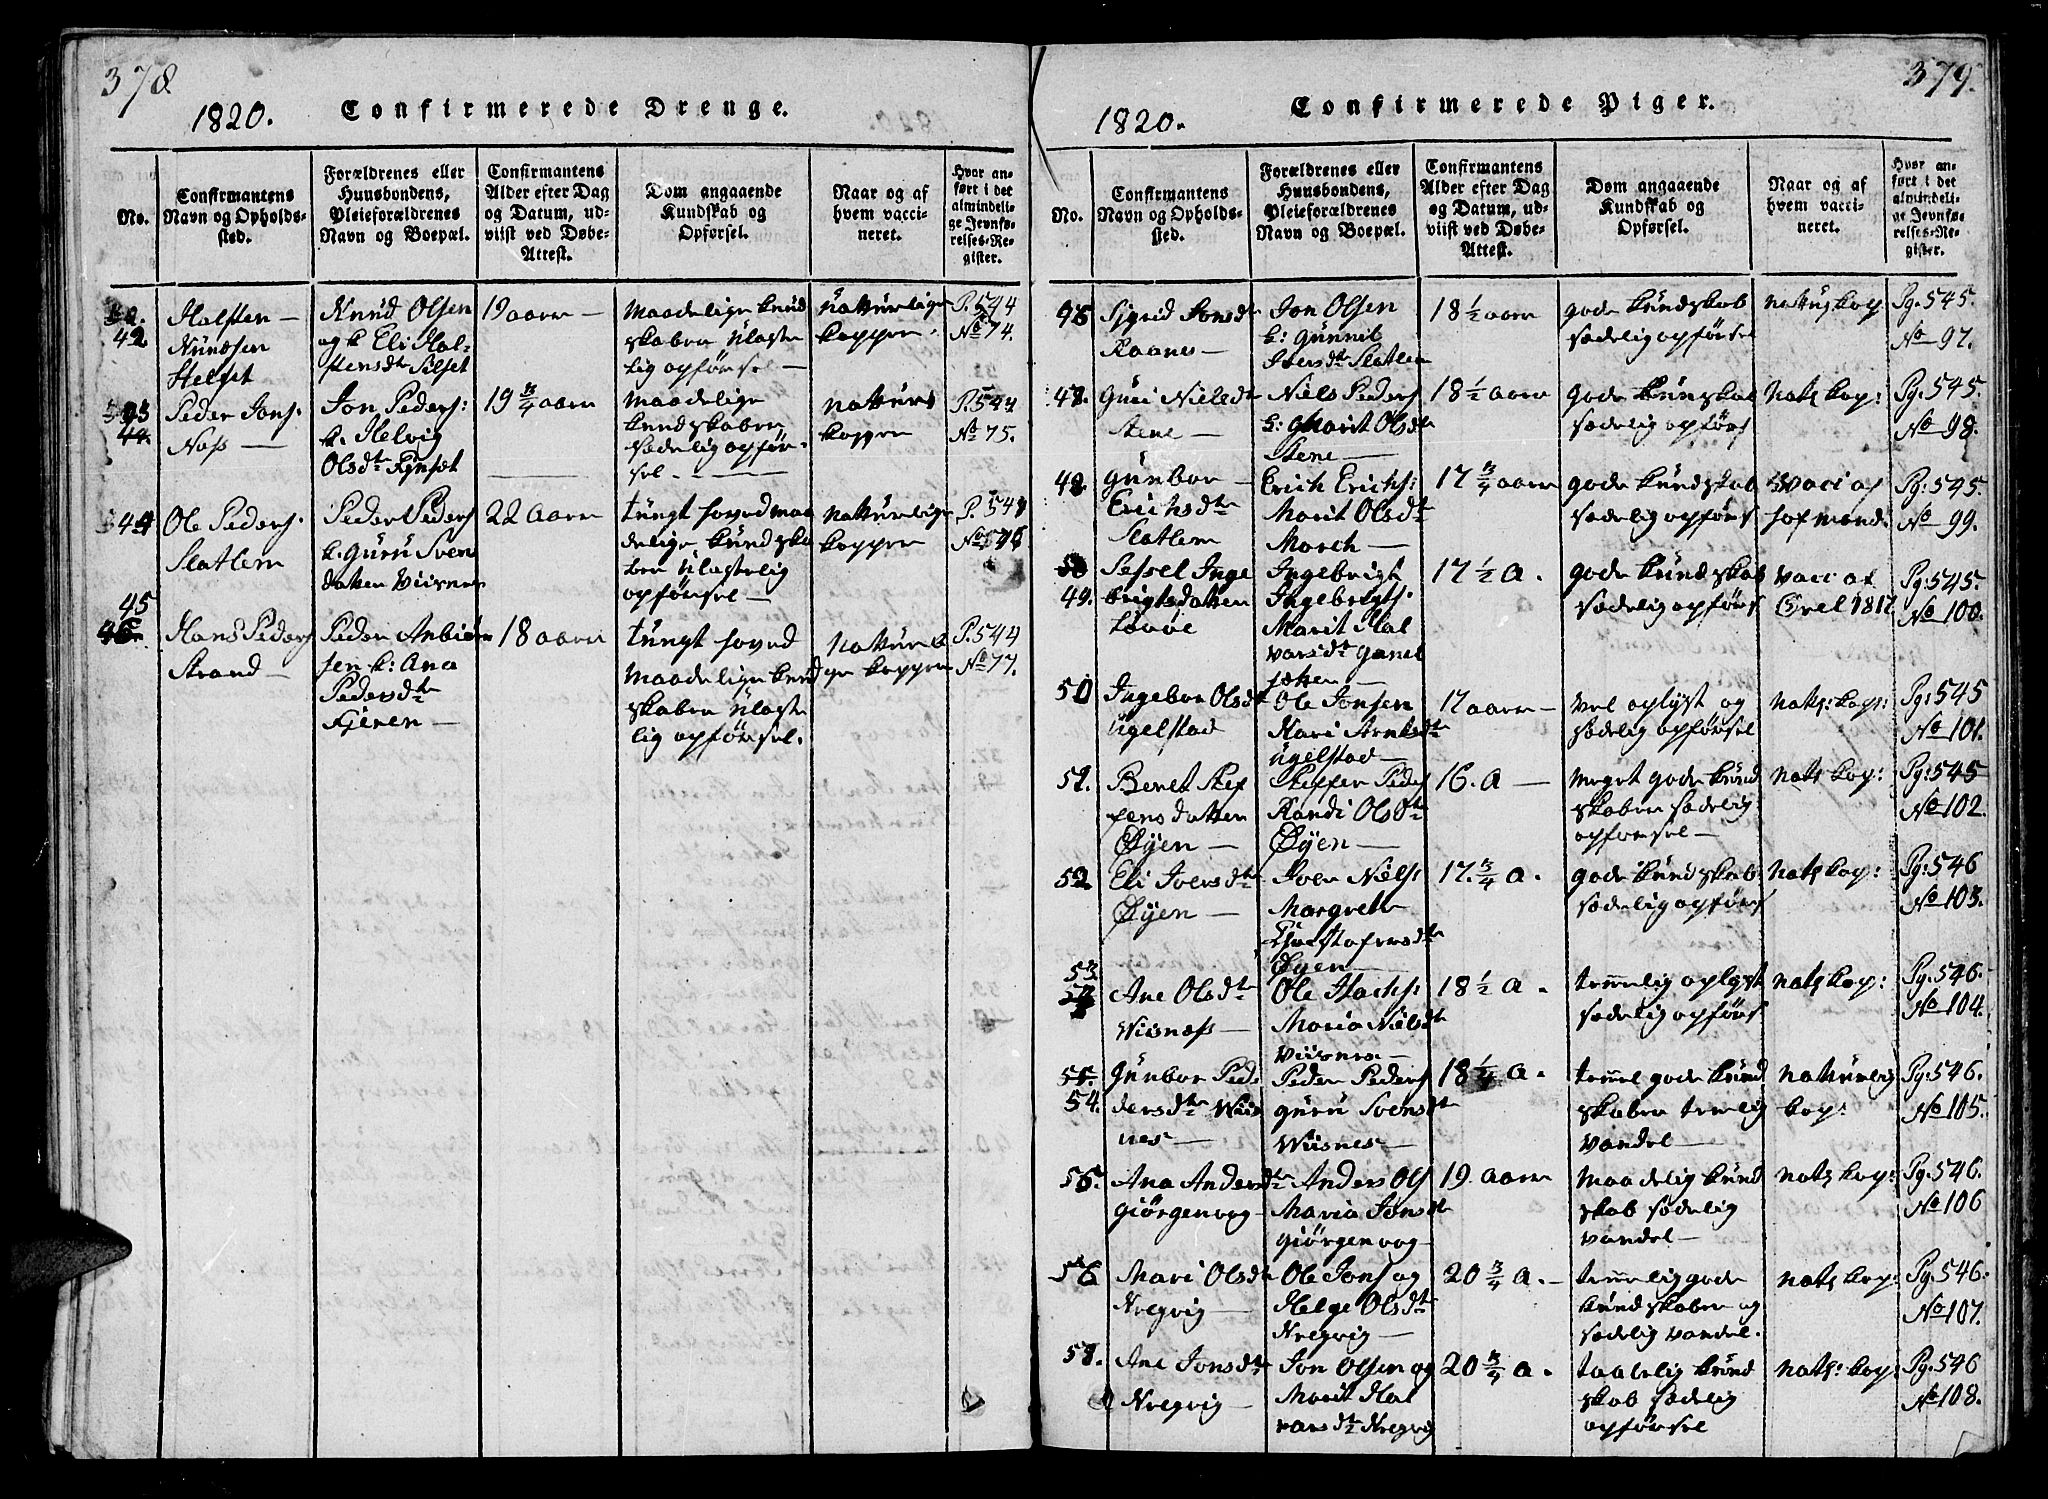 378.
1820. Confirmerede Drenge.
No.
Confirmantens Navn og Opholds-sted.
Forældrenes eller Huusbondens, Pleieforældrenes Navn og Boepæl.
Confirmantens Alder efter Dag og Datum, ud-viist ved Døbe-Attest.
Dom angaaende Kundskab og Opførsel.
Naar og af hvem vacci-neret.
Hvor an-ført i det almindeli-ge Jevnfø-relses-Re-gister.
42. Halsten Knudsen Helset
Knud Olsen og k Eli Hal-stensdtr Silset
19 aar
maadelige kund skaber ulaste lig opførsel
naturlige kopper
P. 544 No 74.
43 Peder Jons: Næss
Jon Peders: k. Helvig Olsdtr
19 3/4 aar
maadelige kundskaber sædelig opfør-sel
naturs kopper
P. 544 No 75.
44 Ole Peders. Slatlem
Peder Peders k. Guru Svens datter Viisnes
22 aar
tungt hoved maa delige kundska ber ulastelig opførsel
naturlige kopper
P. 544 No 76
45 Hans Peders Strand
Peder Anbiørn sen k: Ana Pedersdtr
18 aar
tungt hoved maadelige kund skaber ulaste lig opførsel.
naturli ge kopper
P. 544 No 77.
379.
1820. Confirmerede Piger.
No.
Confirmantens Navn og Opholds-sted.
Forældrenes eller Huusbondens, Pleieforældrenes Navn og Boepæl.
Confirmantens Alder efter Dag og Datum, ud-viist ved Døbe-Attest.
Dom angaaende Kundskab og Opførsel.
Naar og af hvem vacci-neret.
Hvor an-ført i det almindeli-ge Jevnfø-relses-Re-gister.
Sigrid Jonsdtr Raanes
Jon Olsen k: Gunnil Iversdtr Slatlem
18 1/2 aar
gode kundskab sædelig opførsel
Pg. 545. No 97.
Guri Nielsdtr Stene
Niels Peders k: Marit Olsdtr Stene
18 1/2 aar
gode kunskab sædelig opførs
nats kop:
Pg. 545. No 98.
Gunbor Erichsdtr Slatlem
Erich Erichs: Marit Olsdtr Morch
17 3/4 aar
gode kundskab sædelig opførs
vaci af hofmand
Pg: 545. No 99.
49. Sessel Inge brigtsdatter
Ingebrigt Ingebrigts: Marit Hal varsdtr
17 1/2 a.
gode kundskab sædelig opførs
vacci af
Pg: 545. No 100.
50 Ingebor Olsdtr Ugelstad
Ole Jonsen Kari Ugelstad
17 aar
vel oplyst og sædelig opførsel
nats: kop:
Pg: 545 No 101.
51. Beret Stef fens datter Øyen
Steffen Peders Randi Olsdtr Øyen
16. a
meget gode kund skaber sædelig opførsel
nats kop:
Pg: 545 No 102.
52. Eli Iversdtr Øyen
Iver Niels: Margrete Christofersdtr Øyen
17. 3/4 a.
gode kundskab sædelig opførs
nats kop:
Pg: 546 No 103.
53. Ane Olsdtr Wiisnæss
Ole Maria Nielsdtr Viisnes
18 1/2 a.
temelig oplyst sædelig opførs
nats kop:
Pg. 546. No 104.
54. Gunbor Pe dersdtr Wiis nes
Peder Peders Guru Svensdtr Wiisnes
18 1/4 a.
temel gode kund skaber temelig vandel
naturlig kop:
Pg: 546. No 105.
55. Ana Andersdtr Giørgenvog
Anders Ols Maria Jonsdtr Giørgenvog
19. aar
maadelig kund skab sædelig vandel
nats kop:
Pg: 546. No 106
56 Mari Olsdtr Kregvig
Ole Jons og Helge Olsdtr Kregvig
20 3/4 a.
temelig gode kundskaber og sædelig vandel.
nats kop:
Pg. 546. No 107.
Ane Jonsdtr Kregvig
Jon Olsen og Marit Hal varsdtr Kregvig
20 3/4 a.
taalelig kund skab sædelig opførsel
nats: kop:
Pg. 546 No 108.